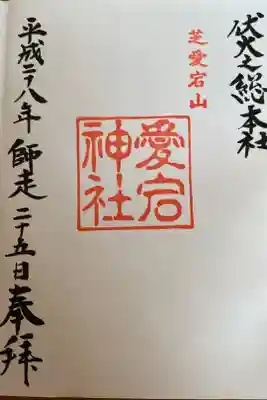 伏火之総本社
芝愛宕山
愛宕
神社
平成二八年 師走 二十五日 奉拜